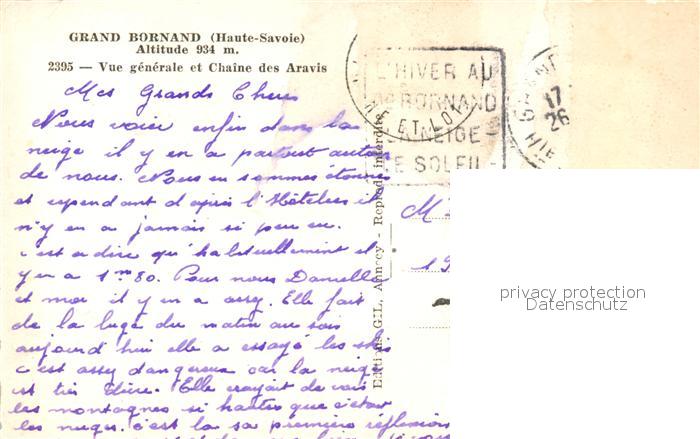 GRAND BORNAND (Haute-Savoie)
Altitude 934 m.
2395 — Vue générale et Chaîne des Aravis
L'HIVER AU
BORNAND
NEIGE -
SOLEIL -
17
26
Mes Grands Chers
Nous voici enfin dans la
neige il y en a partout autour
de nous. Nous en sommes étonnés
et cependant d'après l'Hôtelier il
n'y en a jamais si peu eu.
c'est a dire qu'habituellement il
y en a 1m80. Pour nous Danielle
et moi il y en a assez. Elle fait
de la luge du matin au soir
aujourd'hui elle a essayé les skis
c'est assez dangereux car la neige
est très dure. Elle croyait de voir
les montagnes si hautes que c'était
les nuages. c'est la sa première réflexion
Editions G.I.L. Annecy - Reprod. interdite
M
19
privacy protection
Datenschutz